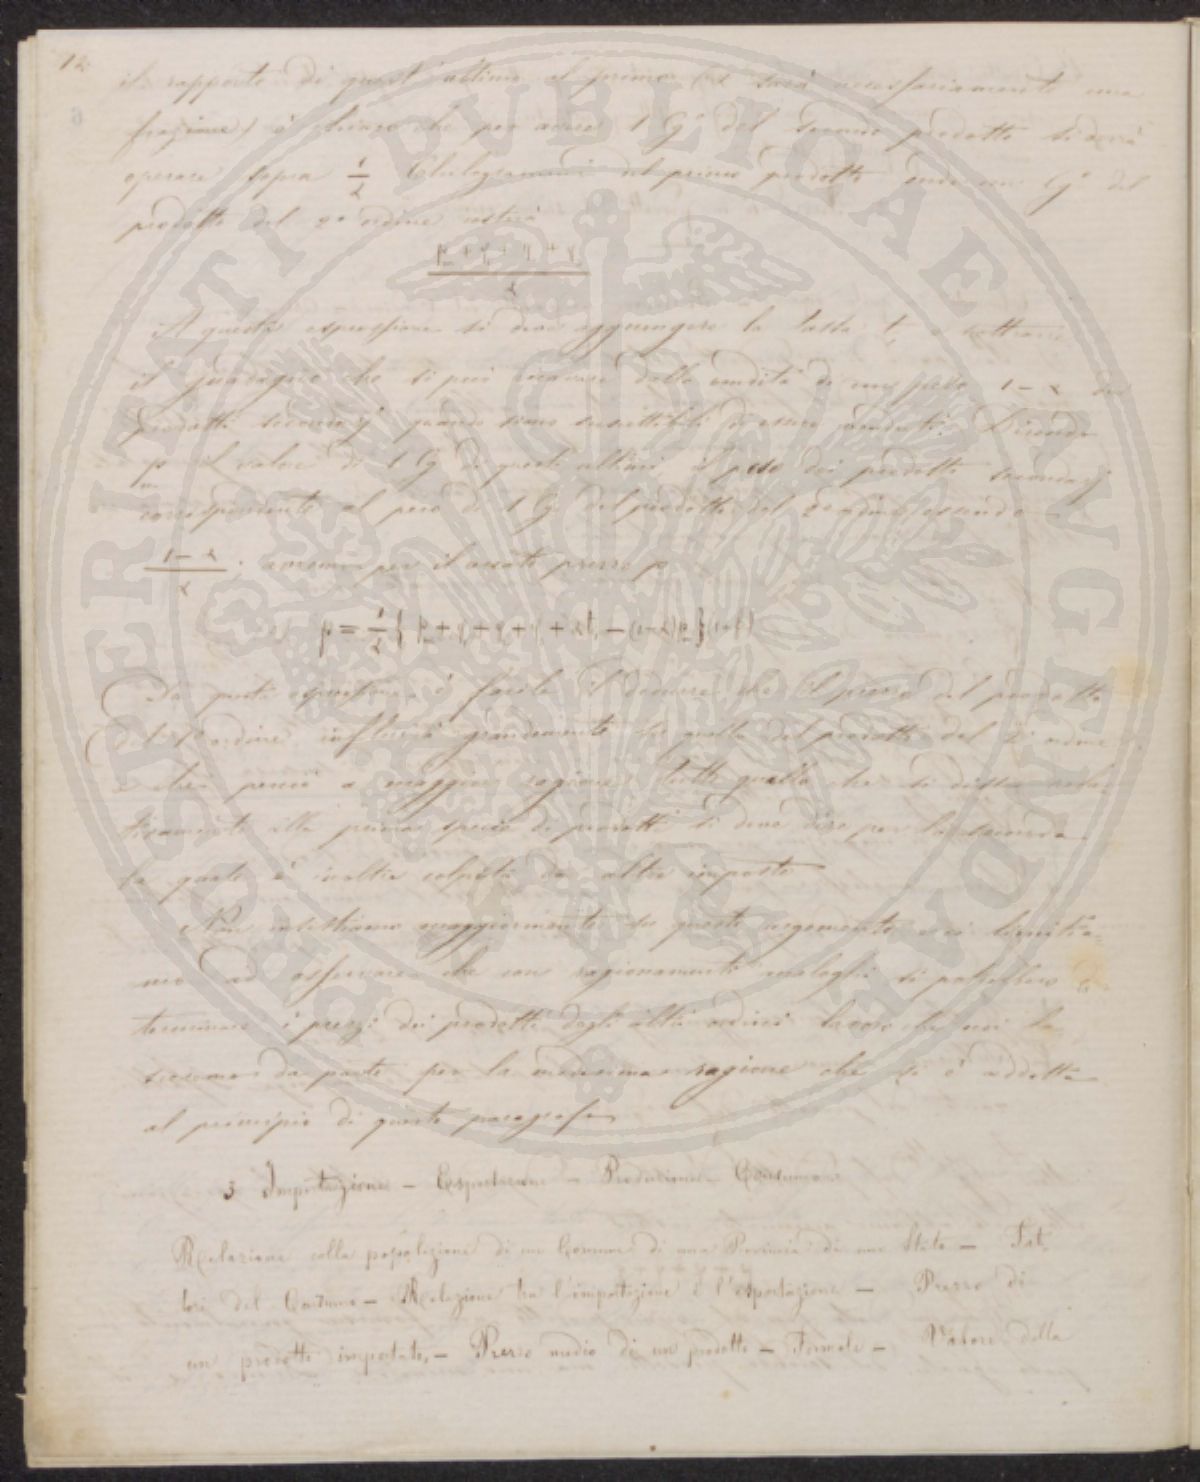 12
il rapporto di quest'ultimo al primo (α sarà necessariamente una
frazione) è chiaro che per avere 1 Cg.º del secondo prodotto si dovrà
operare sopra 1/α Chilogrammi del primo prodotto onde un Cg.º del
prodotto del 2º ordine costerà
A questa espressione si deve aggiungere la tassa t, e sottrarre
il guadagno che si può ricavare dalla vendita di un peso 1-α dei
prodotti secondarj quando siano suscettibili di essere venduti. Dicendo
p il valore di 1 Cg di questi ultimi, il peso dei prodotti secondarj
corrispondente al peso di 1 Cg. del prodotto del 2º ordine essendo
1-α/α; avremo per il cercato prezzo p
Da questa espressione è facile il dedurre che il prezzo del prodotto
del 1º ordine influirà grandemente su quello del prodotto del 2º ordine
e che perciò a maggior ragione tutto quello che si disse rela-
tivamente alla prima specie di prodotti si deve dire per la seconda
la quale è inoltre colpita da altre imposte
Non insistiamo maggiormente su questo argomento e ci limitia-
mo ad osservare che con ragionamenti analoghi si potrebbero de
terminare i prezzi dei prodotti degli altri ordini lavoro che noi la
sceremo da parte per la medesima ragione che si è addotta
al principio di questo paragrafo
3 Importazione – Esportazione – Produzione – Consumo
Relazione colla popolazione di un Comune di una Provincia di uno Stato – Fat
tori del Consumo – Relazione tra l'importazione e l'esportazione – Prezzo di
un prodotto importato, – Prezzo medio di un prodotto – Formole – Valore della
VERITATI PUBLICAE AVGENDAE PROSPERITATI